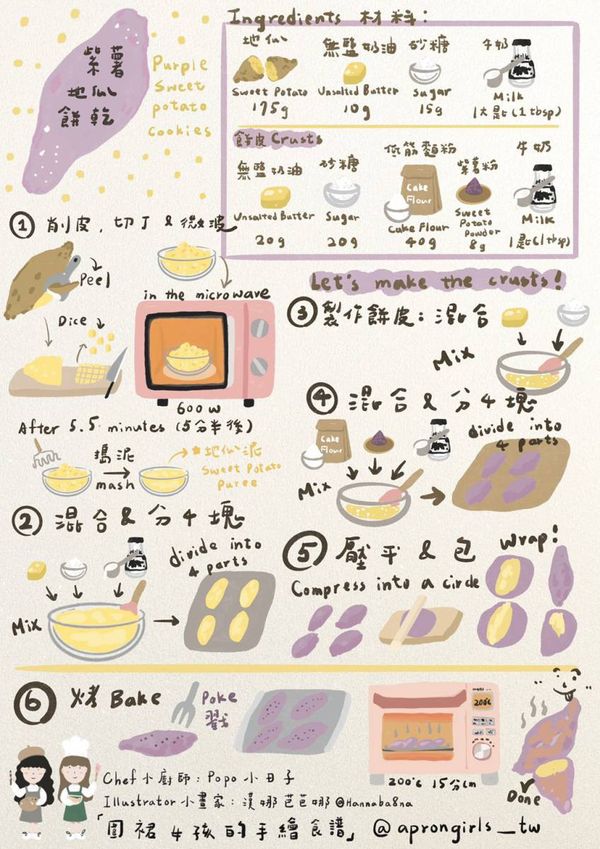 紫薯
地瓜
餅乾
Purple
Sweet
potato
cookies
Ingredients 材料:
地瓜 無鹽奶油 砂糖 牛奶
Sweet Potato Unsalted Butter Sugar Milk
175g 10g 15g 1大匙(1 tbsp)
餅皮 Crusts
無鹽奶油 砂糖 低筋麵粉 紫薯粉 牛奶
Cake
Flour
Unsalted Butter Sugar Cake Flour Sweet Potato Powder Milk
20g 20g 40g 8g 1匙(1 tbsp)
① 削皮,切丁 & 微波
Peel
Dice
in the microwave
600w
After 5.5 minutes (5分半後)
搗泥
mash
地瓜泥
Sweet Potato
Puree
② 混合 & 分4塊
divide into
4 parts
Mix
Let's make the crusts!
③ 製作餅皮:混合
Mix
④ 混合 & 分4塊
divide into
4 parts
Cake
Flour
Mix
⑤ 壓平 & 包 Wrap!
Compress into a circle
⑥ 烤 Bake
Poke
戳
200°c
200°c 15分cm
Done
Chef 小廚師:Popo小日子
Illustrator 小畫家:漢娜芭芭娜 @Hannaba8na
「圍裙女孩的手繪食譜」@aprongirls_tw